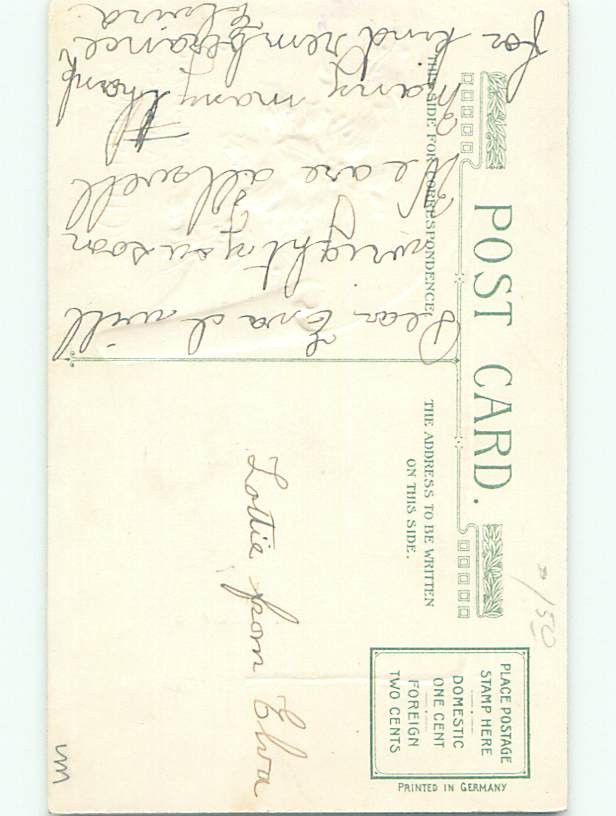 POST CARD.
THIS SIDE FOR CORRESPONDENCE.
THE ADDRESS TO BE WRITTEN
ON THIS SIDE.
PLACE POSTAGE
STAMP HERE
DOMESTIC
ONE CENT
FOREIGN
TWO CENTS
PRINTED IN GERMANY
Dear Eva I will
wright you soon
We are all well
many many thank
for kind rembrance
Elvira
Lottie from Elva
150